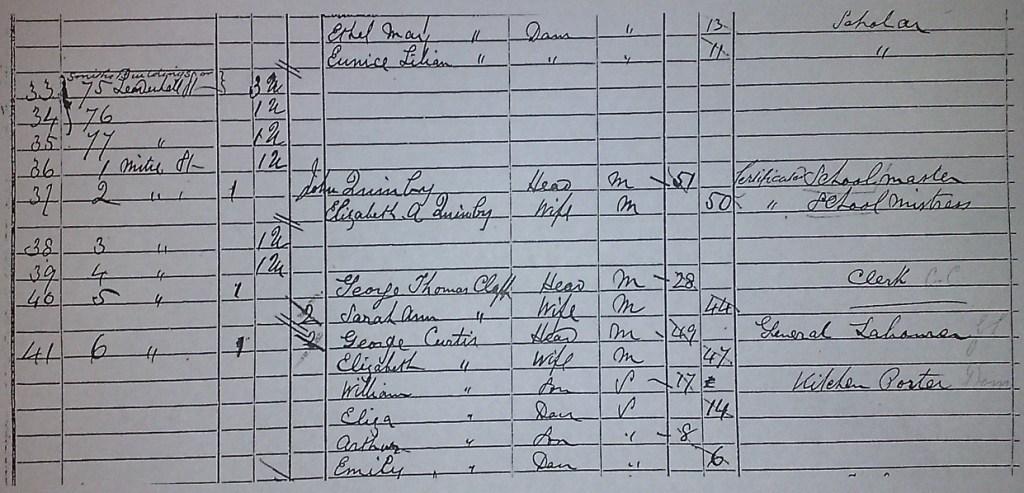 Ethel May " Daur " 13 Scholar
Eunice Lilian " " " 11 "
Smiths Buildings or
33 75 Leadenhall St 3 U
34 76 1 U
35 77 " 1 U
36 1 Mitre St 1 U
37 2 " " 1 John Quimby Head M 51 Certificated Schoolmaster
Elizabeth A Quimby Wife M 50 " School Mistress
38 3 " 1 U
39 4 " 1 U
40 5 " 1 George Thomas Clapp Head M 28 Clerk C.C
2 Sarah Ann " Wife M 44
41 6 " 1 2 George Curtis Head M 49 General Labourer
Elizabeth " Wife M 47
William " Son S 17 Kitchen Porter
Eliza " Daur S 14
Arthur " Son " 8
Emily " Daur " 6